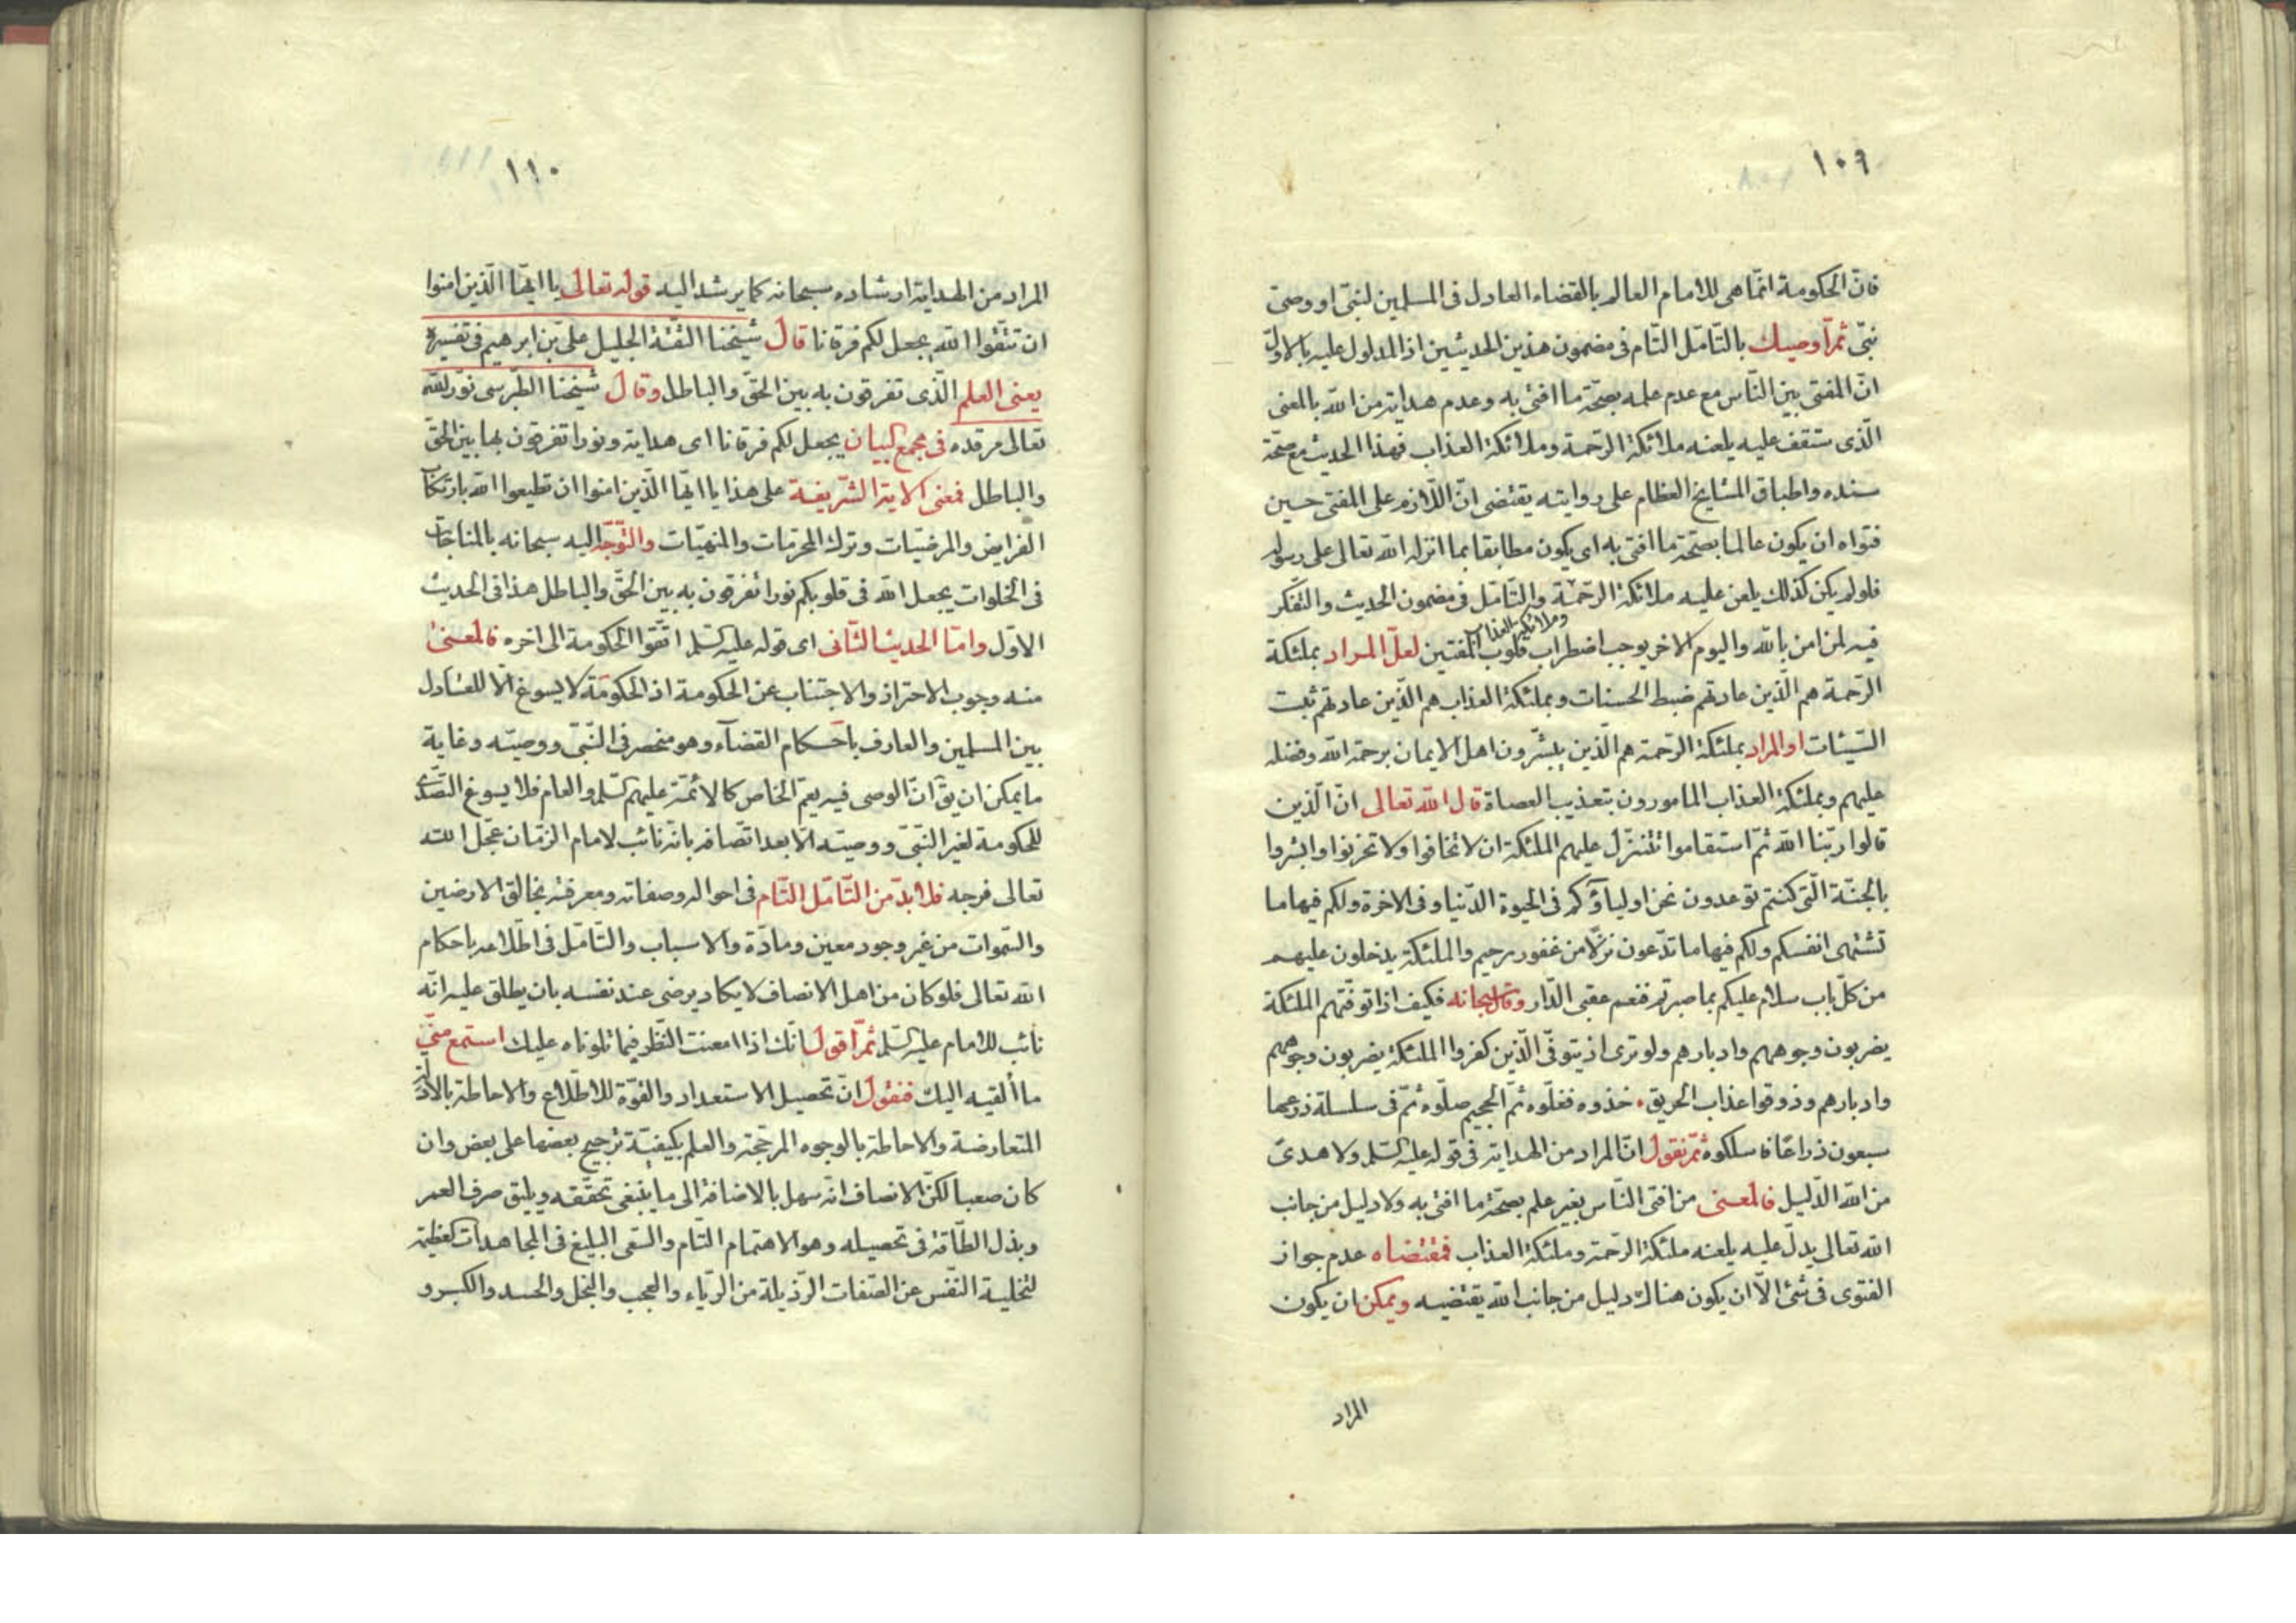 ١٠٩
فانّ الحكومة انّما هى للامام العالم بالقضاء العادل فى المسلمين لنبىّ او وصىّ
نبىّ ثمّ اوصيك بالتّامّل التّام فى مضمون هذين الحديثين اذ المدلول عليه بالاوّل
انّ المفتى بين النّاس مع عدم علمه بصحّة ما افتى به وعدم هداية من اللّه بالمعنى
الّذى ستقف عليه يلعنه ملائكة الرّحمة وملائكة العذاب فهذا الحديث مع صحّة
سنده واطباق المشايخ العظام على روايته يقتضى انّ اللّازم على المفتى حين
فتواه ان يكون عالما بصحّة ما افتى به اى يكون مطابقا بما انزله اللّه تعالى على رسوله
فلو لم يكن كذلك يلعن عليه ملائكة الرّحمة والتّامّل فى مضمون الحديث والتّفكّر
وملائكة العذاب
فيه لمن امن باللّه واليوم الاخر يوجب اضطراب قلوب المفتين لعلّ المراد بملئكة
الرّحمة هم الّذين عادتهم ضبط الحسنات وبملئكة العذاب هم الّذين عادتهم ثبت
السّيئات او المراد بملئكة الرّحمة هم الّذين يبشّرون اهل الايمان برحمة اللّه وفضله
عليهم وبملئكة العذاب المامورون بتعذيب العصاة قال اللّه تعالى انّ الّذين
قالوا ربّنا اللّه ثمّ استقاموا تتنزّل عليهم الملئكة ان لا تخافوا ولا تحزنوا وابشروا
بالجنّة الّتى كنتم توعدون نحن اولياؤكم فى الحيوة الدّنيا وفى الاخرة ولكم فيها ما
تشتهى انفسكم ولكم فيها ما تدّعون نزلًا من غفور رحيم والملئكة يدخلون عليهم
من كلّ باب سلام عليكم بما صبرتم فنعم عقبى الدّار وقال سبحانه فكيف اذا توفّتهم الملئكة
يضربون وجوههم وادبارهم ولو ترى اذ يتوفّى الّذين كفروا الملئكة يضربون وجوههم
وادبارهم وذوقوا عذاب الحريق خذوه فغلّوه ثمّ الجحيم صلّوه ثمّ فى سلسلة ذرعها
سبعون ذراعًا فاسلكوه ثمّ نقول انّ المراد من الهداية فى قوله عليه السّلم ولا هدىّ
من اللّه الدّليل فالمعنى من افتى النّاس بغير علم بصحّة ما افتى به ولا دليل من جانب
اللّه تعالى يدلّ عليه يلعنه ملئكة الرّحمة وملئكة العذاب فمقتضاه عدم جواز
الفتوى فى شئ الّا ان يكون هناك دليل من جانب اللّه يقتضيه ويمكن ان يكون
المراد
١١٠
المراد من الهداية ارشاده سبحانه كما يرشد اليه قوله تعالى يا ايّها الّذين امنوا
ان تتّقوا اللّه يجعل لكم فرقانا قال شيخنا الثّقة الجليل علىّ بن ابرهيم فى تفسيره
يعنى العلم الّذى تفرقون به بين الحقّ والباطل وقال شيخنا الطّبرسى نوّر اللّه
تعالى مرقده فى مجمع البيان يجعل لكم فرقانا اى هداية ونورا تفرقون بها بين الحقّ
والباطل فمعنى الاية الشّريفة على هذا يا ايّها الّذين امنوا ان تطيعوا اللّه بارتكاب
الفرايض والمرغّبات وترك المحرّمات والمنهيّات والتّوجّه اليه سبحانه بالمناجات
فى الخلوات يجعل اللّه فى قلوبكم نورا تفرقون به بين الحقّ والباطل هذا فى الحديث
الاوّل وامّا الحديث الثّانى اى قوله عليه السّلم اتّقوا الحكومة الى اخره فالمعنى
منه وجوب الاحتراز والاجتناب عن الحكومة اذ الحكومة لا يسوغ الّا للعادل
بين المسلمين والعارف باحكام القضاء وهو منحصر فى النّبىّ ووصيّه وغاية
ما يمكن ان يق انّ الوصى فيه يعمّ الخاص كالائمّة عليهم السّلم والعام فلا يسوغ التّصدّى
للحكومة لغير النّبىّ ووصيّه الّا بعد اتّصافه بانّه نائب لامام الزّمان عجّل اللّه
تعالى فرجه فلا بدّ من التّامّل التّام فى احواله وصفاته ومعرفته بخالق الارضين
والسّموات من غير وجود معين ومادّة والاسباب والتّامّل فى اطّلاعه باحكام
اللّه تعالى فلو كان من اهل الانصاف لا يكاد يرضى عند نفسه بان يطلق عليه انّه
نائب للامام عليه السّلم ثمّ اقول انّك اذا امعنت النّظر فيما تلوناه عليك استمع منّى
ما ألقيه اليك فنقول انّ تحصيل الاستعداد والقوّة للاطّلاع والاحاطة بالادلّة
المتعارضة والاحاطة بالوجوه المرجّحة والعلم بكيفيّة ترجيح بعضها على بعض وان
كان صعبا لكنّ الانصاف انّه سهل بالاضافة الى ما ينبغى تحقّقه ويليق صرف العمر
وبذل الطّاقة فى تحصيله وهو الاهتمام التّام والسّعى البليغ فى المجاهدات العظيمة
لتخلية النّفس عن الصّفات الرّذيلة من الرّياء والعجب والبخل والحسد والكبر و